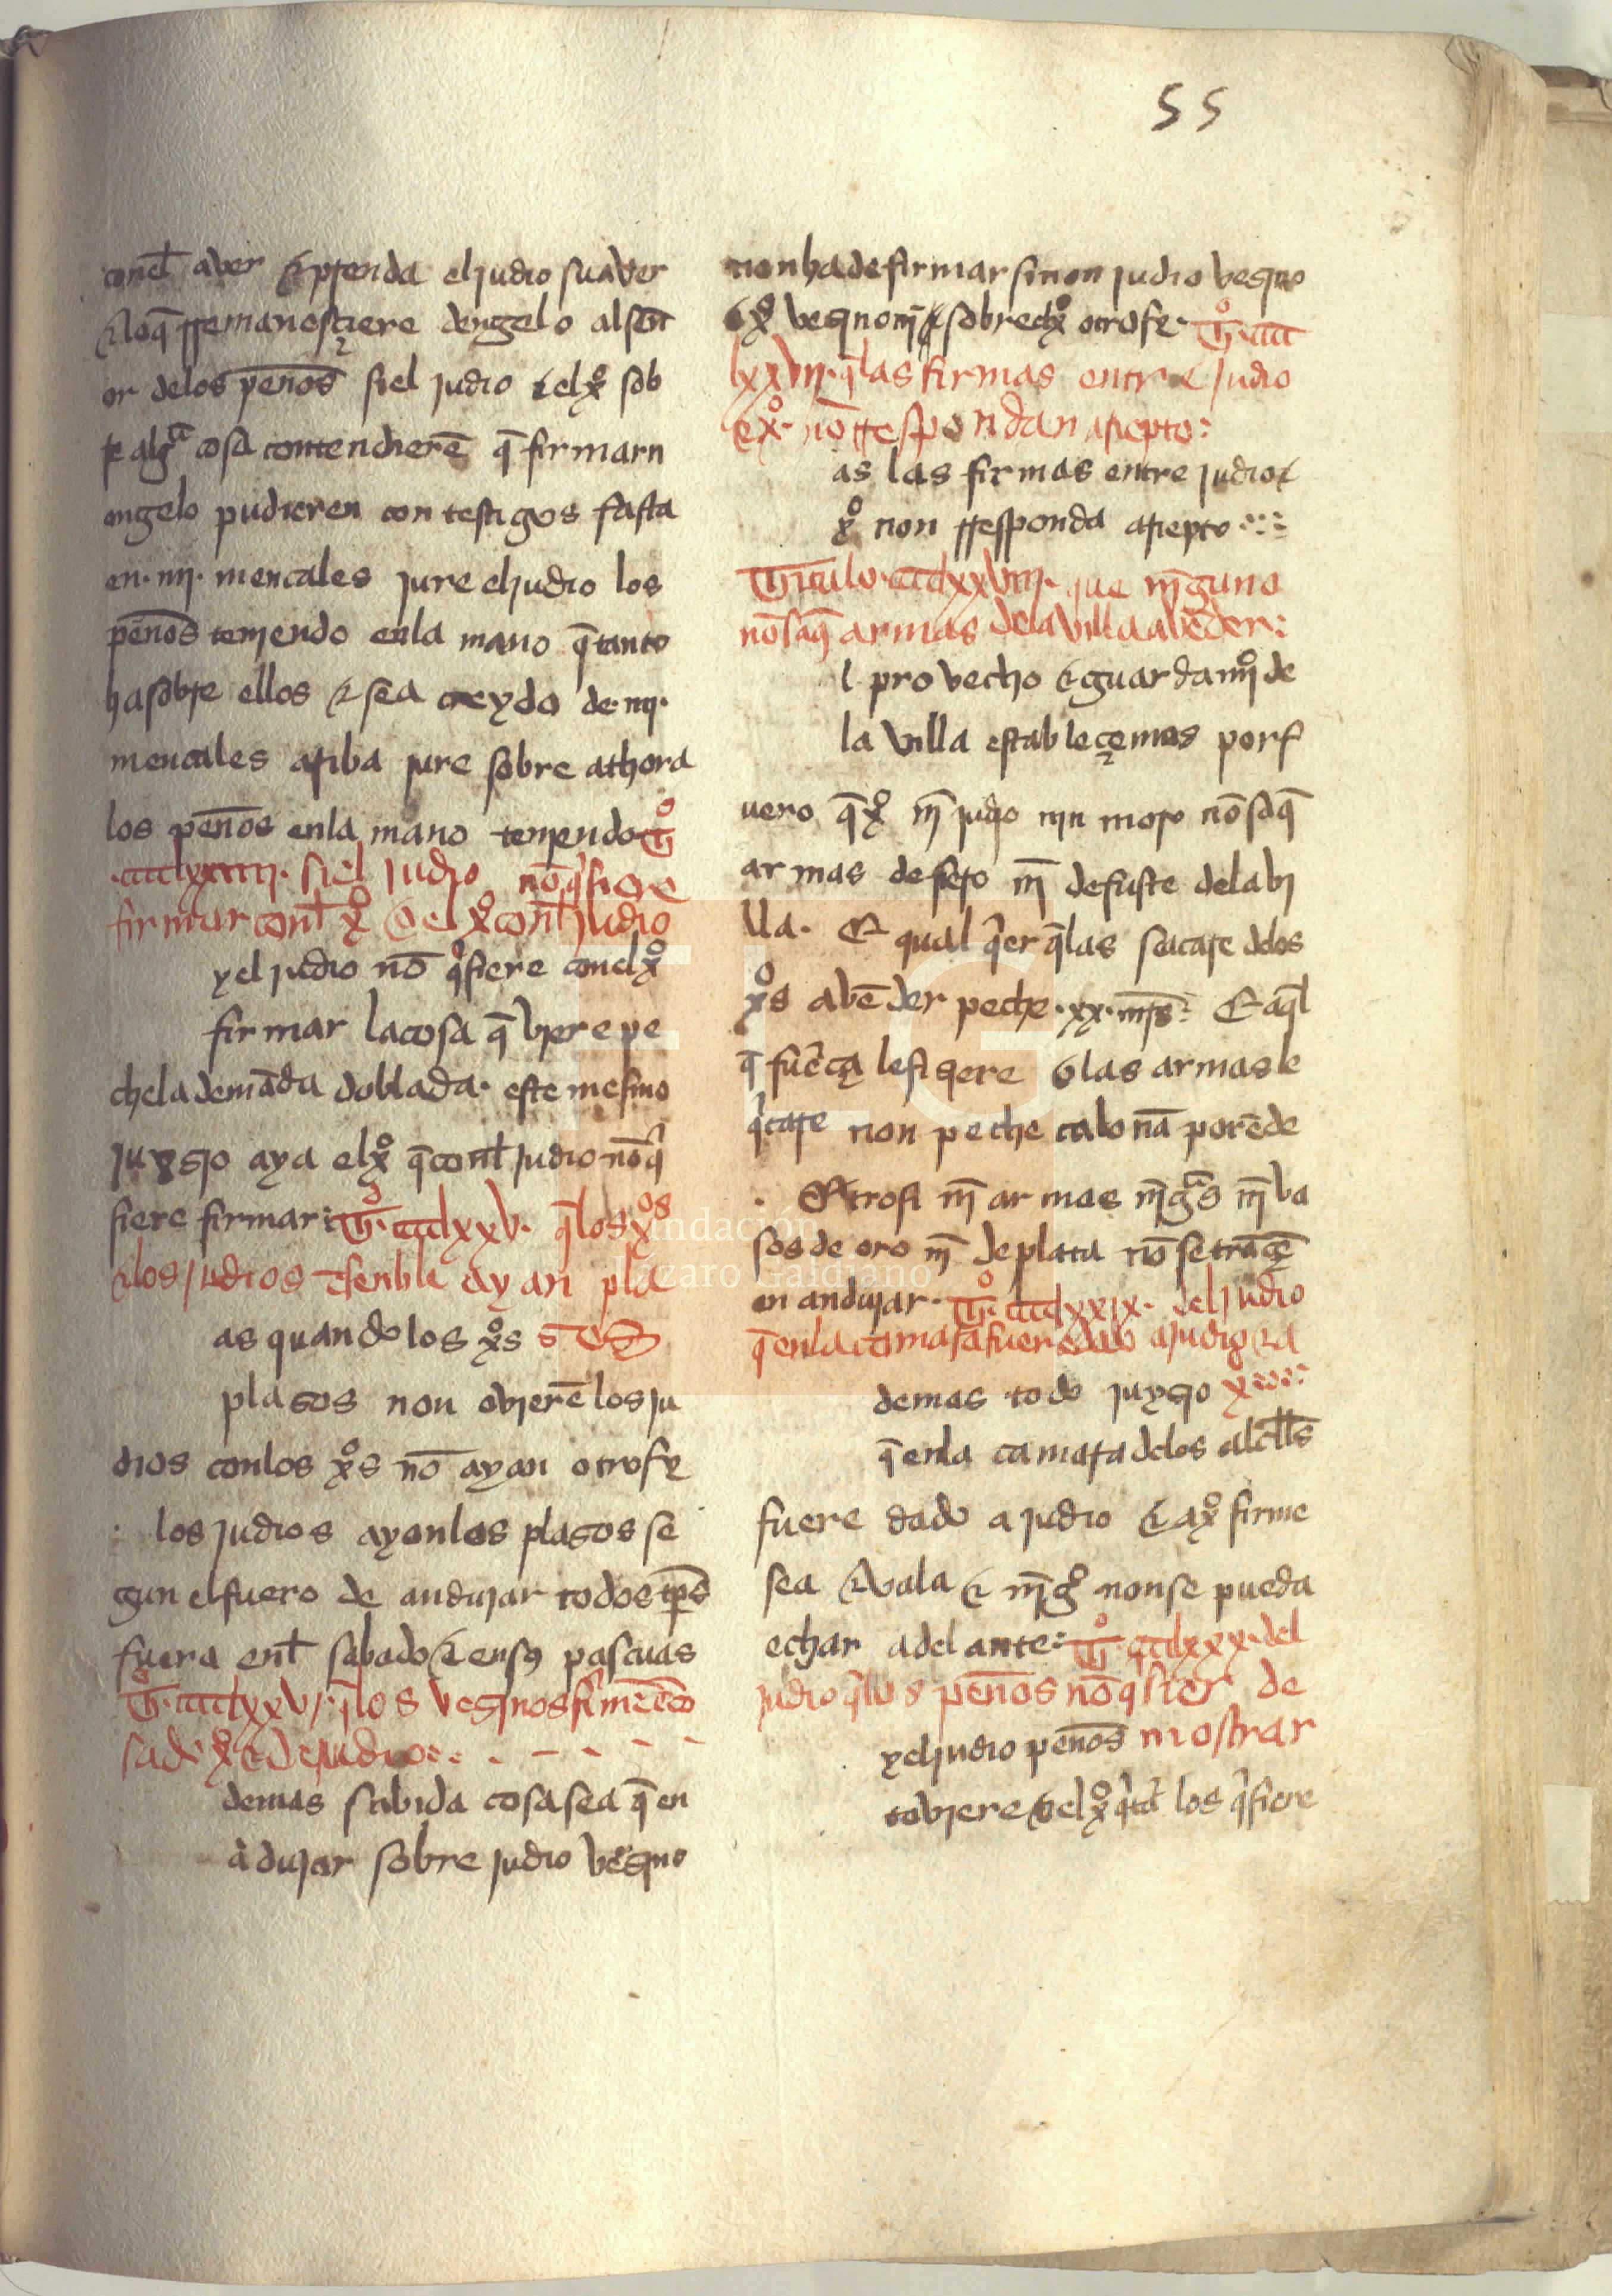 55
conel aver & prenda el judio su aver
& lo q̄ rremanesçiere dengelo al señ
or delos peños si el judio & el xº sob
re algª cosa contendierē q̄ firmarn
ongelo pudieren con testigos fasta
en .iiij. mencales jure el judio los
peños teniendo enla mano q̄ tanto
ha sobre ellos & sea creydo de .iiij.
mencales arriba jure sobre athora
los peños enla mano teniendo Tº
.cccclxxiiij. si el judio nō q̄siere
firmar conl xº & el xº conl judio
y el judio nō q̄siere conel xº
firmar la cosa q̄ viere pe
che la demāda doblada. este mesmo
juyzio aya el xº q̄ conl judio nō q̄
siere firmar: Tº. cccclxxv. q̄ los xºs
& los judios ēsenble ayan pla
as quando los xºs
plasos non ovierē los ju
dios conlos xºs nō ayan otrosy
los judios ayan los plasos se
gun el fuero de andujar todos tp̄s
fuera enl sabado & en sꝯ pascuas
Tº. cccclxxvj. q̄ los vesinos firmē ē co
sa de xº & de judio:
demas sabida cosa sea q̄ en
ādujar sobre judio vesino
non ha de firmar sinon judio vesino
& xº vesino nī sobrecxº otrosy. Tº. cccc
lxxvij. q̄ las firmas entre judio
& xº. nō rrespondan a riepto:
as las firmas entre judio &
xº non rresponda a riepto
Titulo. cccclxxviij. que nīguno
nō saq̄ armas dela villa a vēder:
l provecho & guardamiº de
la villa estableçemos por f
uero q̄ xº nī judio nin moro nō saq̄
armas de fierro nī de fuste dela vi
lla. E qual q̄er q̄ las sacare delos
xºs a vēder peche .xx. mr̄s: E aq̄l
q̄ fuerça le fisiere o las armas le
q̄tare non peche caloña porēde
. Otrosi nī armas nīgªs nī va
sos de oro nī de plata nō se trāçē
en andujar. Tº. cccclxxix. del judio
q̄ enla camara fuere dado a judio & a
demas todo juyzio xº:
q̄ enla camara delos alclls
fuere dado a judio & a xº firme
sea & vala & nīgº non se pueda
echar adelante: Tº. cccclxxx. del
judio q̄ los peños nō q̄sier de
y el judio peños mostrar
toviere & el xº q̄tar los q̄siere
Fundación
Lázaro Galdiano
FLG